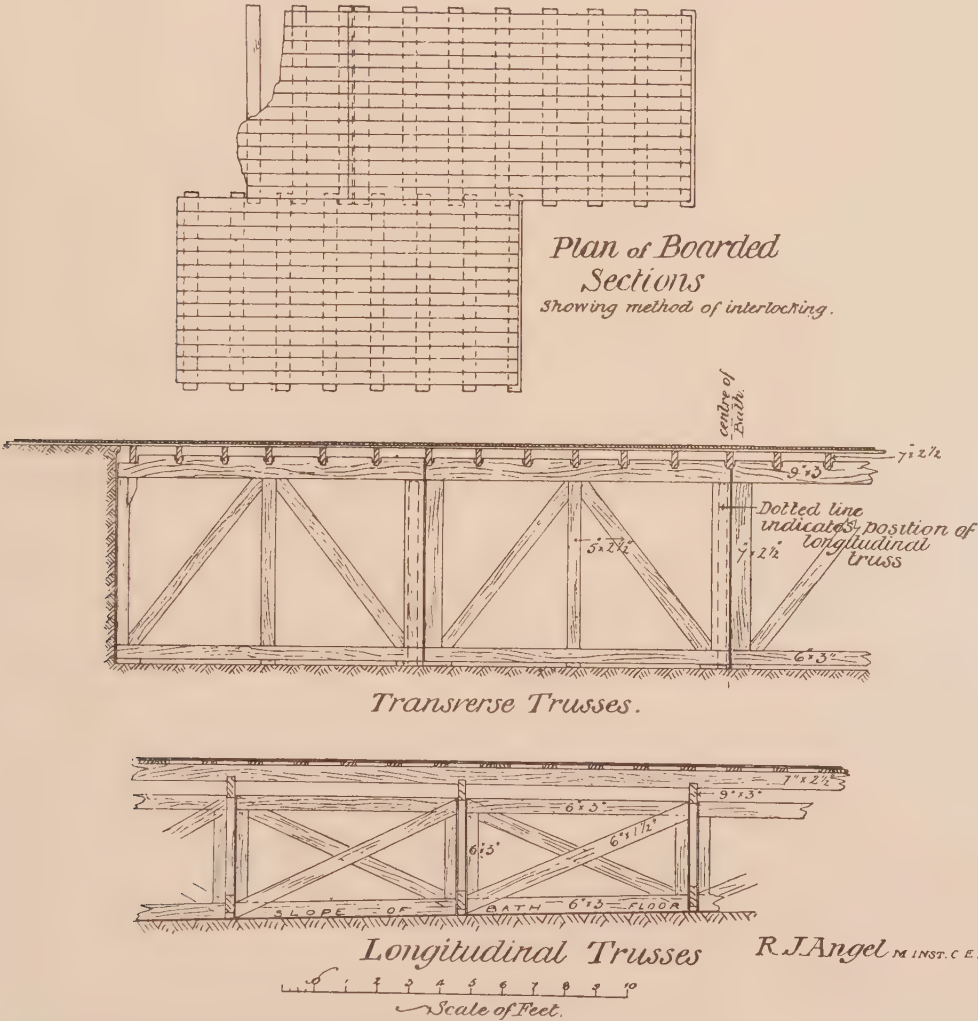 Plan of Boarded
Sections
Showing method of interlocking.
centre of
Bath.
7" x 2 1/2
9" x 3"
Dotted line
indicates position of
longitudinal
truss
5" x 2 1/2"
7" x 2 1/2"
6" x 3"
Transverse Trusses.
7" x 2 1/2"
9" x 3"
6" x 3"
6" x 1 1/2"
6" x 3"
SLOPE OF BATH 6" x 3 FLOOR
Longitudinal Trusses
R. J. Angel M INST. C E.
0 1 2 3 4 5 6 7 8 9 10
Scale of Feet.